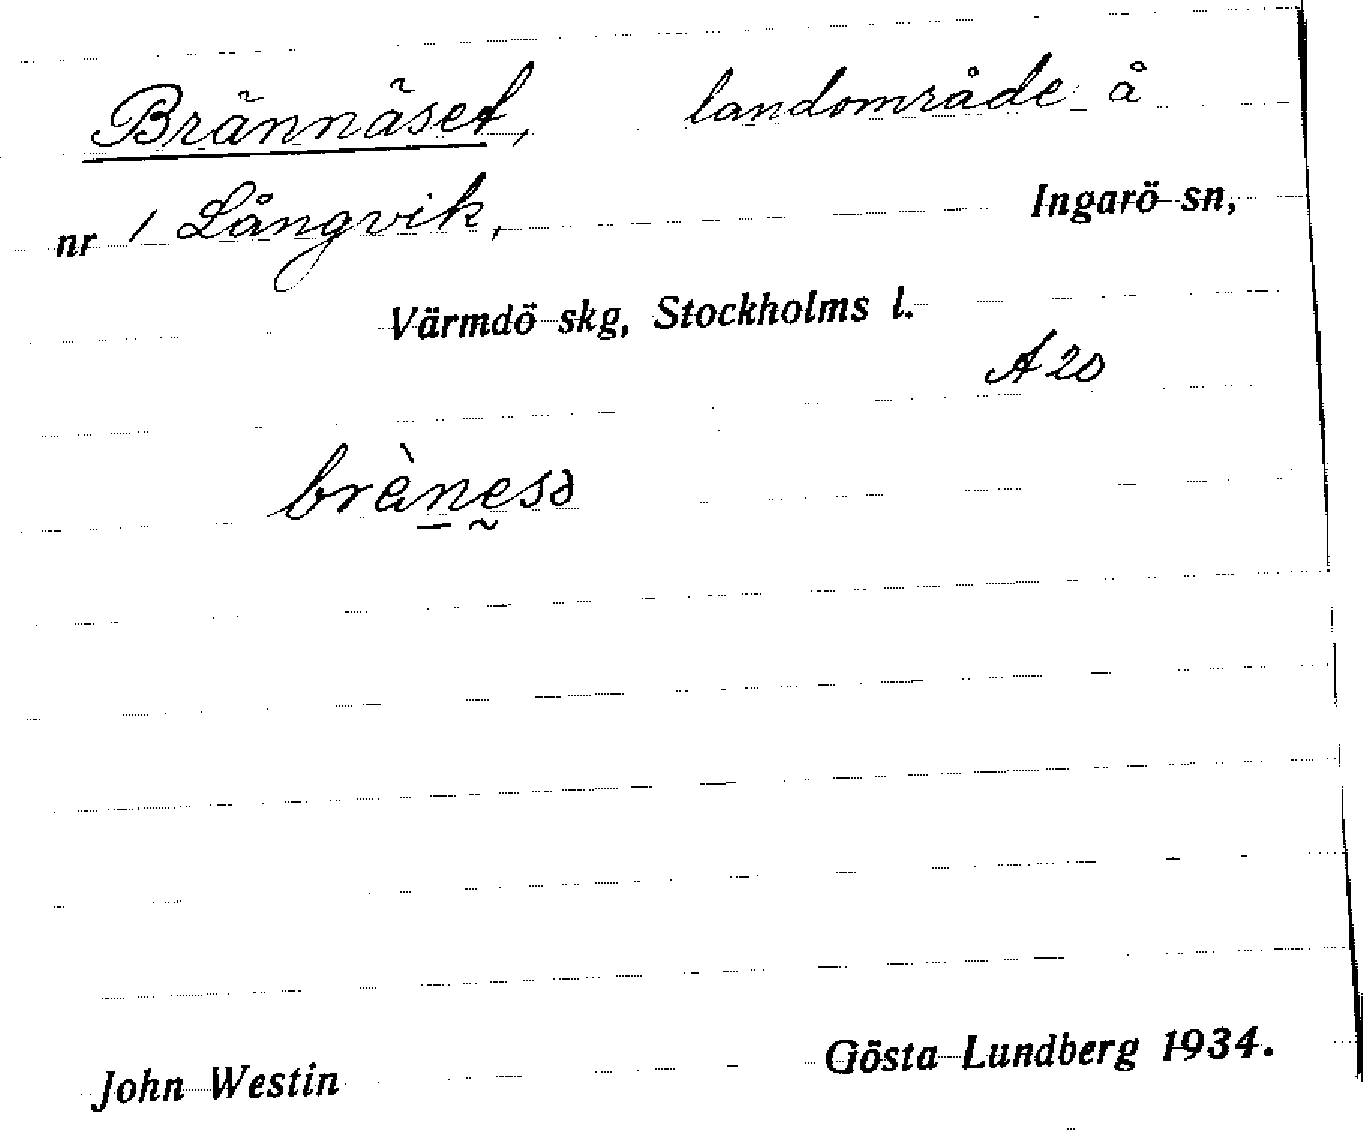 Brännäset, landområde å
nr 1 Långvik, Ingarö sn,
Värmdö skg, Stockholms l.
A 20
brànesə
John Westin Gösta Lundberg 1934.